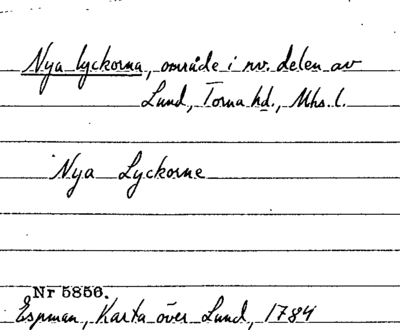 Nya lyckorna, område i nv. delen av
Lund, Torna hd., Mhs. l.
Nya Lyckorne
Nr 5856.
Espman, Karta över Lund, 1784